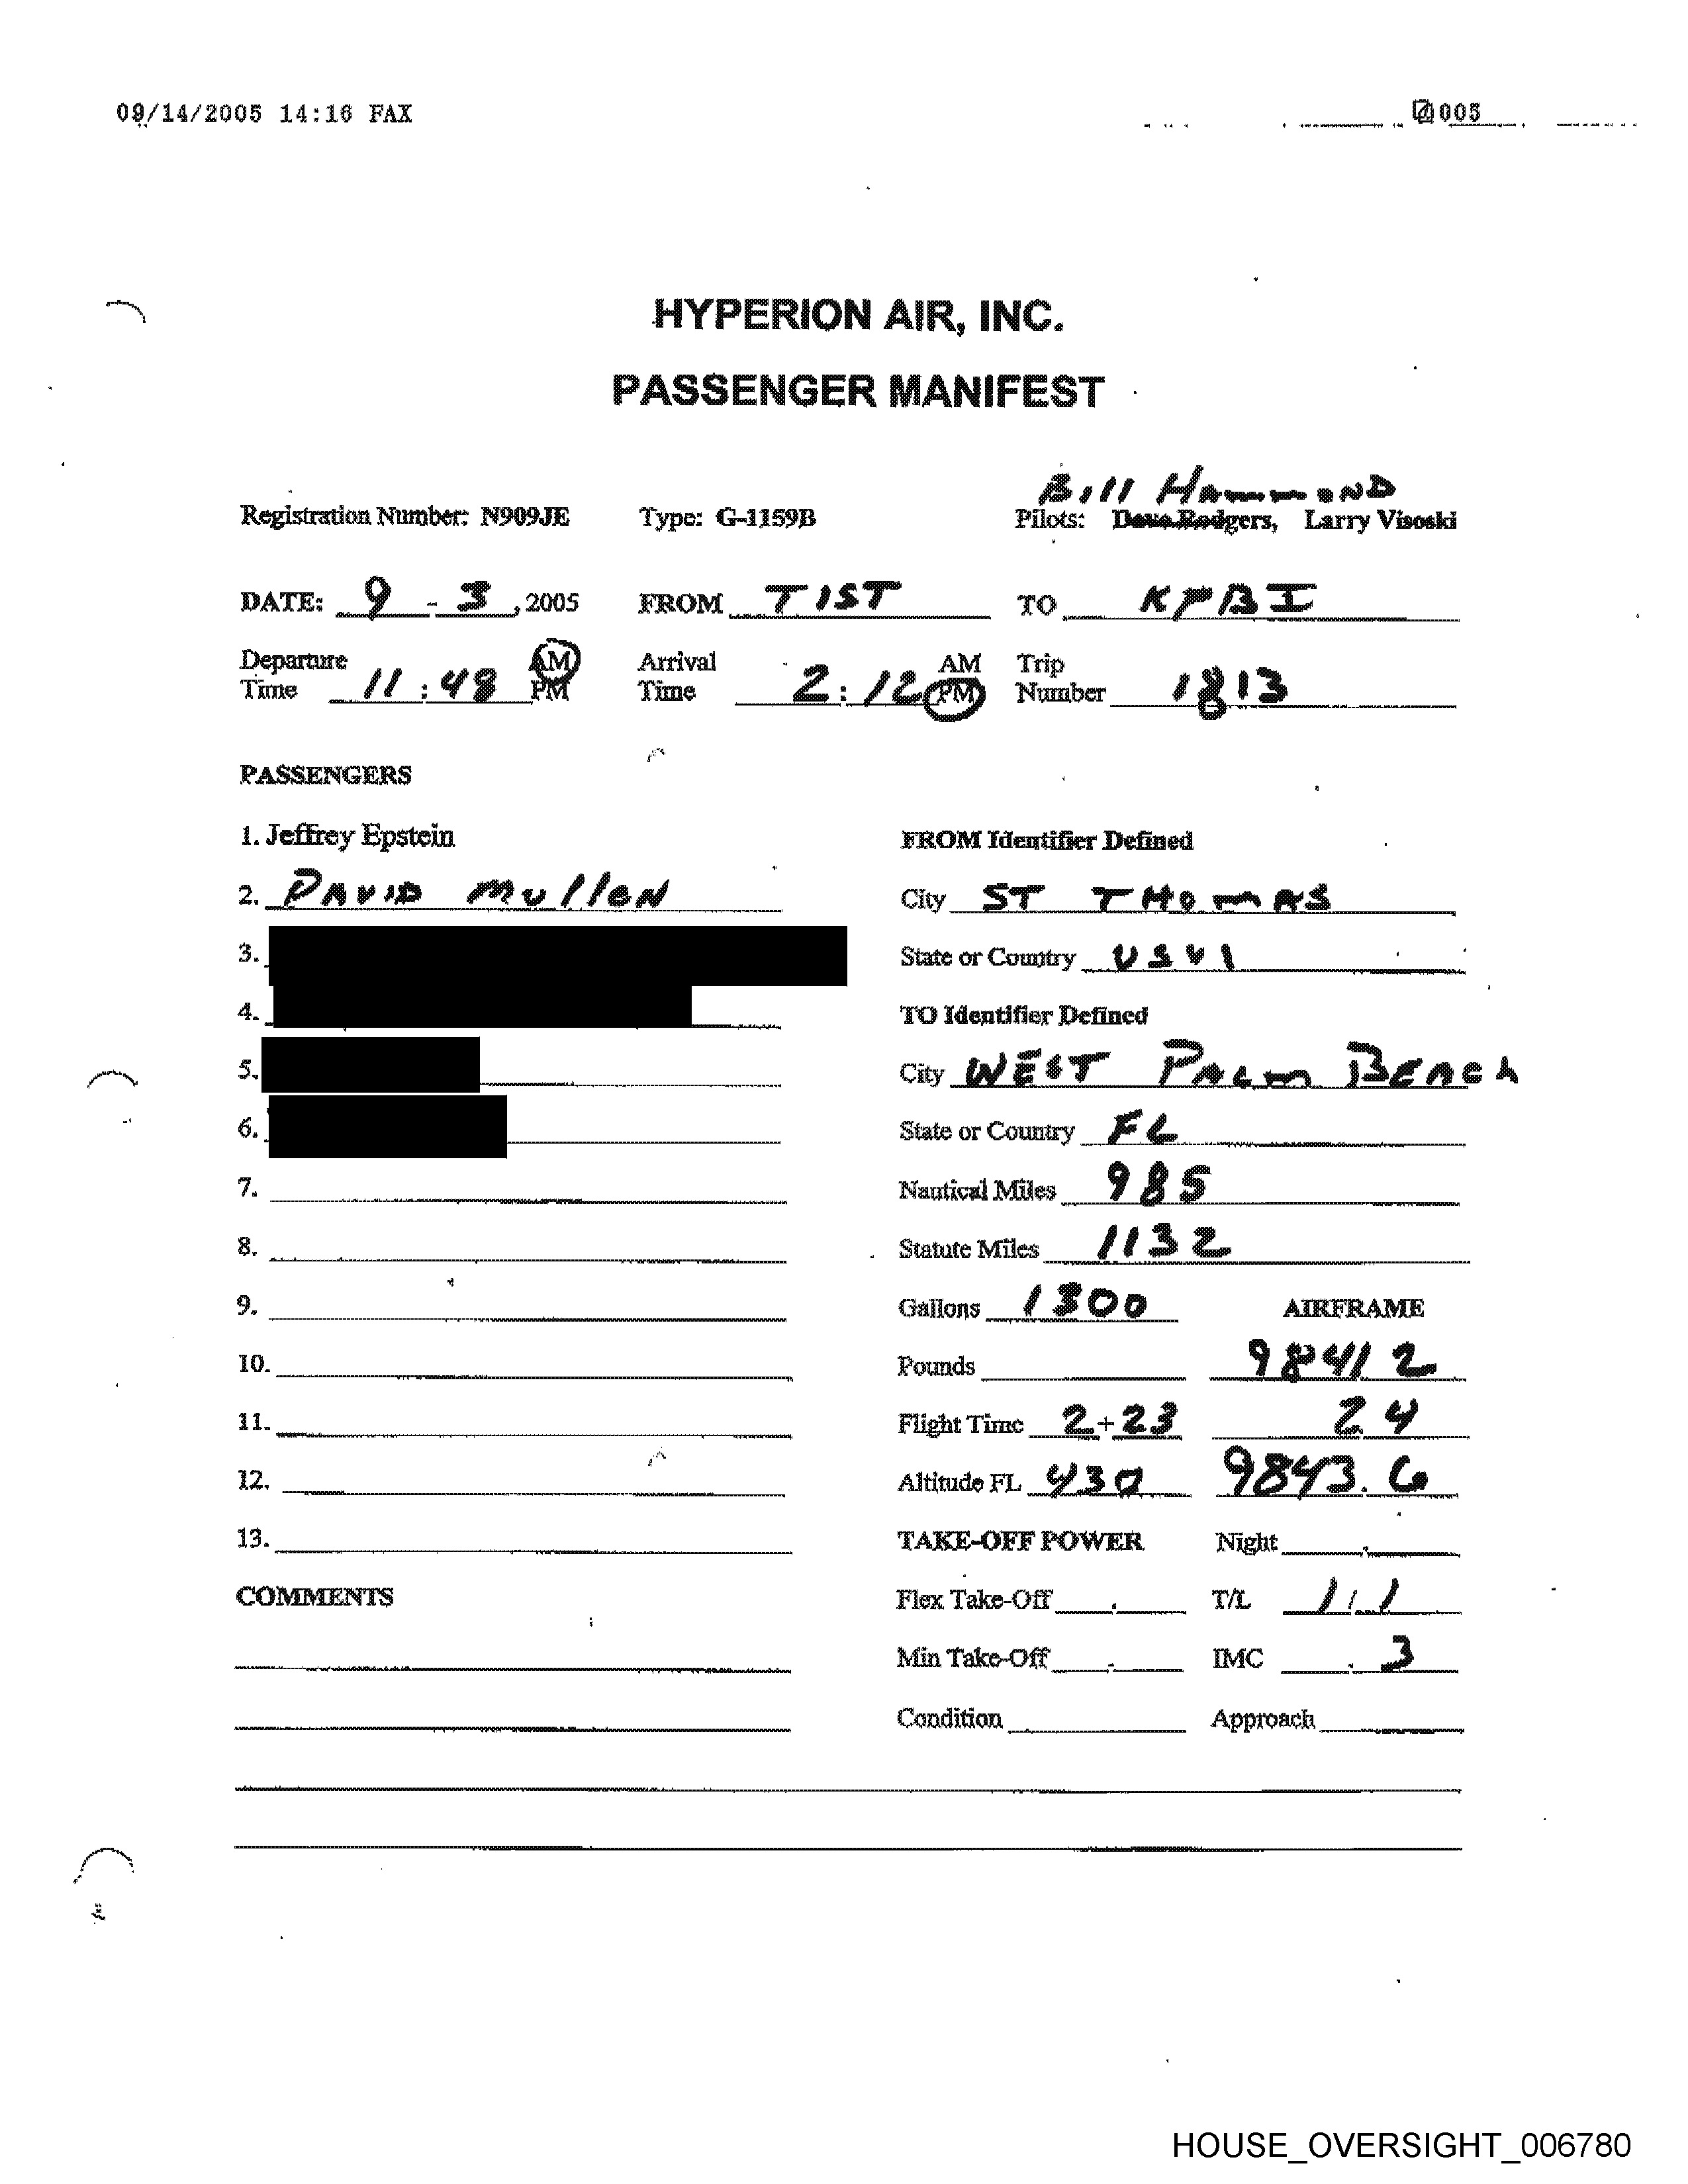 09/14/2005 14:16 FAX 005
HYPERION AIR, INC.
PASSENGER MANIFEST
Bill HAmmoND
Registration Number: N909JE Type: G-1159B Pilots: Dave Rodgers, Larry Visoski
DATE: 9 - 3, 2005 FROM TIST TO KPBI
Departure Time 11:48 AM PM Arrival Time 2:12 AM PM Trip Number 1813
PASSENGERS
1. Jeffrey Epstein FROM Identifier Defined
2. DAVID mullen City ST THOmAS
3. State or Country USVI
4. TO Identifier Defined
5. City WEST PALm BEACh
6. State or Country FL
7. Nautical Miles 985
8. Statute Miles 1132
9. Gallons 1300 AIRFRAME
10. Pounds 98412
11. Flight Time 2+23 24
12. Altitude FL 430 9843.6
13. TAKE-OFF POWER Night
COMMENTS Flex Take-Off . T/L 1/1
Min Take-Off . IMC .3
Condition Approach
HOUSE_OVERSIGHT_006780